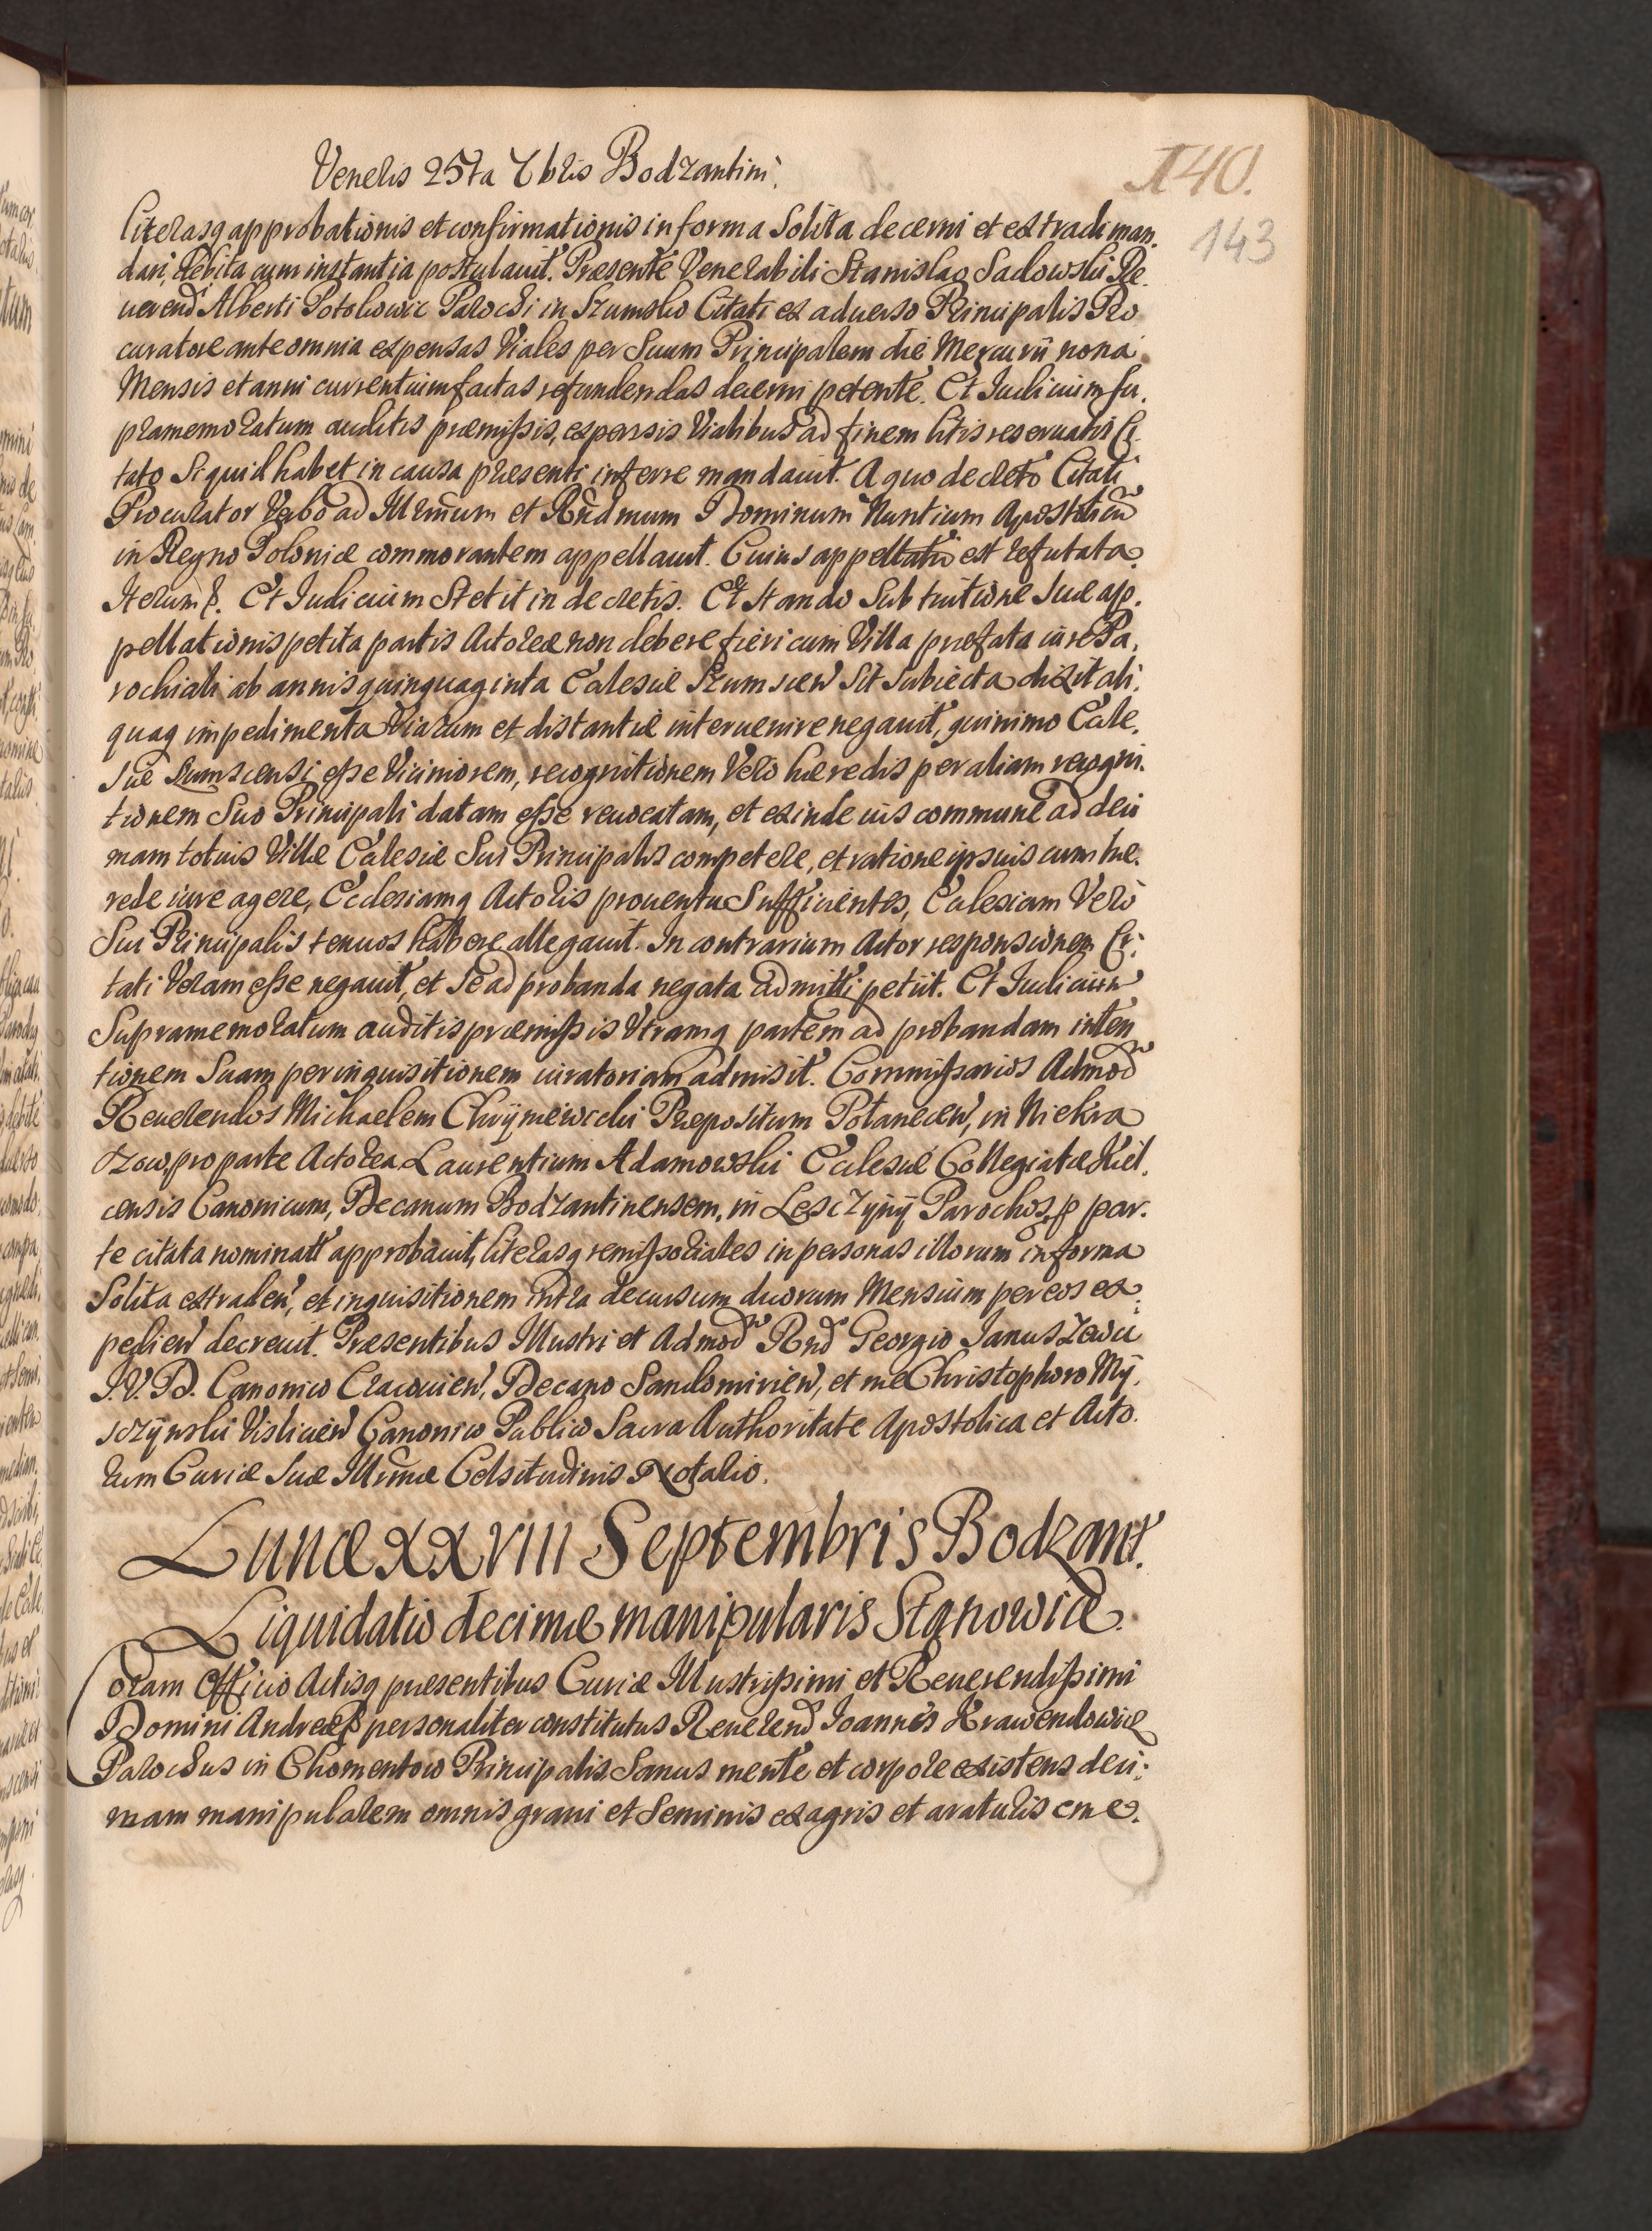 Veneris 25ta 7bris Bodzantini.
140.
143
literasq approbationis et confirmationis in forma Solita decerni et extradi man,
dari, debita cum instantia postulauit. Præsente Venerabili Stanislao Sadowski Re,
uerend Alberti Potokowic Parochi in Szumsko Citati ex aduerso Principalis Pro
curatore ante omnia expensas Viales per Suum Principalem die Mercurii nona
Mensis et anni currentium factas refundendas decerni petente. Et Iudicium su,
pramemoratum auditis præmissis, expensis Vialibus ad finem litis reseruatis Ci
tato Si quid habet in causa præsenti inferre mandauit. A quo decreto Citati
Procurator Verbo ad Illrmum et Rndmum Dominum Nuntium Apostolicu
in Regno Poloniæ commorantem appellauit. Cuius appellatio est refutata.
Iterum &. Et Iudicium Stetit in decretis. Et Stando Sub tuitione Suæ ap,
pellationis petita partis Actoreæ non debere fieri cum Villa præfata iure Pa,
rochiali ab annis quinquaginta Ecclesiæ Szumscen Sit Subiecta dixit ali,
quaq impedimenta Viarum et distantiæ interuenire negauit, quinimo Eccle,
siæ Sumscensi esse Viciniorem, recognitionem Vero hæredis per aliam recogni,
tionem Suo Principali datam esse reuocatam, et exinde ius commune ad deci
mam totius Villæ Ecclesiæ Sui Principalis competere, et ratione ipsius cum hæ,
rede iure agere, Ecclesiamq Actoris prouentus Sufficientes, Ecclesiam Vero
Sui Principalis tenuos habere allegauit. In contrarium Actor responsionem Ci,
tati Veram esse negauit, et Se ad probanda negata admitti petiit. Et Iudicium
Supramemoratum auditis præmissis Utramq partem ad probandam inten
tionem Suam per inquisitionem iuratoriam admisit. Commissarios Admod
Reuerendos Michaelem Præpositum Polanecen, in Niekra
szow, pro parte Actorea Laurentium Adamowski Ecclesiæ Collegiatæ Kiel,
censis Canonicum, Decanum Bodzantinensem, in Lesczyny Parochos, p par,
te citata nominatt approbauit, literasq remissoriales in personas illorum in forma
Solita extraden, et inquisitionem intra decursum duorum Mensium per eos ex,
pedien decreuit. Præsentibus Illustri et Admod Rnd Georgio Ianuszewic
I.V.D. Canonico Cracouien, Decano Sandomirien, et me Christophoro My,
sczynski Visliciен Canonico Publico Sacra Authoritate Apostolica et Acto,
rum Curiæ Suæ Illrmæ Celsitudinis Notario.
Lunæ XXVIII Septembris Bodzant.
Liquidatio decimæ manipularis Stanowice.
Coram Officio Actisq præsentibus Curiæ Illustrissimi et Reuerendissimi
Domini Andreæ & personaliter constitutus Reuerend Ioannes Krawendowic
Parochus in Chomentow Principalis Sanus mente et corpore existens deci,
mam manipularem omnis grani et Seminis ex agris et araturis cme,